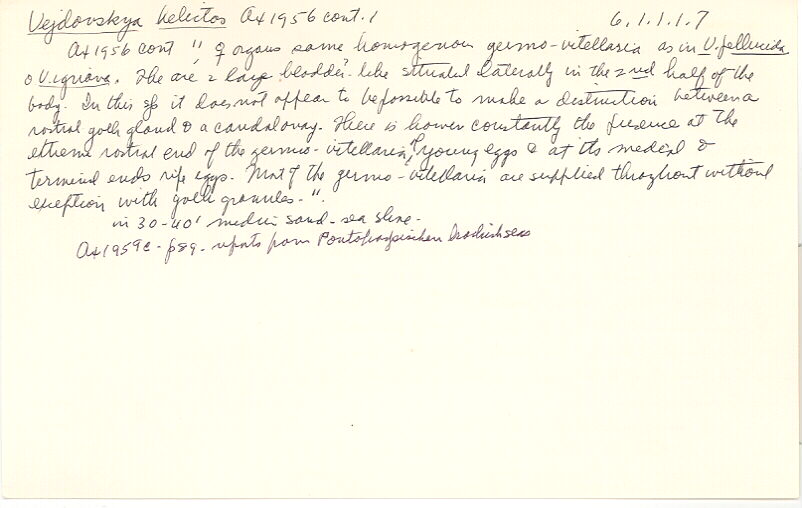 Vejdovskya helictos Ax 1956 cont. 1 6.1.1.1.7
Ax 1956 cont " ♀ organs same homogenous germo-vitellaria as in V. pellucida
o V. ignava. The are 2 large bladder-like situated laterally in the 2nd half of the
body. In this sp it does not appear to be possible to make a distinction between a
rostral yolk gland & a caudal ovary. There is however constantly the presence at the
extreme rostral end of the germo-vitellaria, young eggs & at the medial &
terminal ends ripe eggs. Most of the germo-vitellaria are supplied throughout without
exception with yolk granules. ".
in 30-40' medium sand - sea shore.
Ax 1959c - p89 - reports from Pontokaspischen